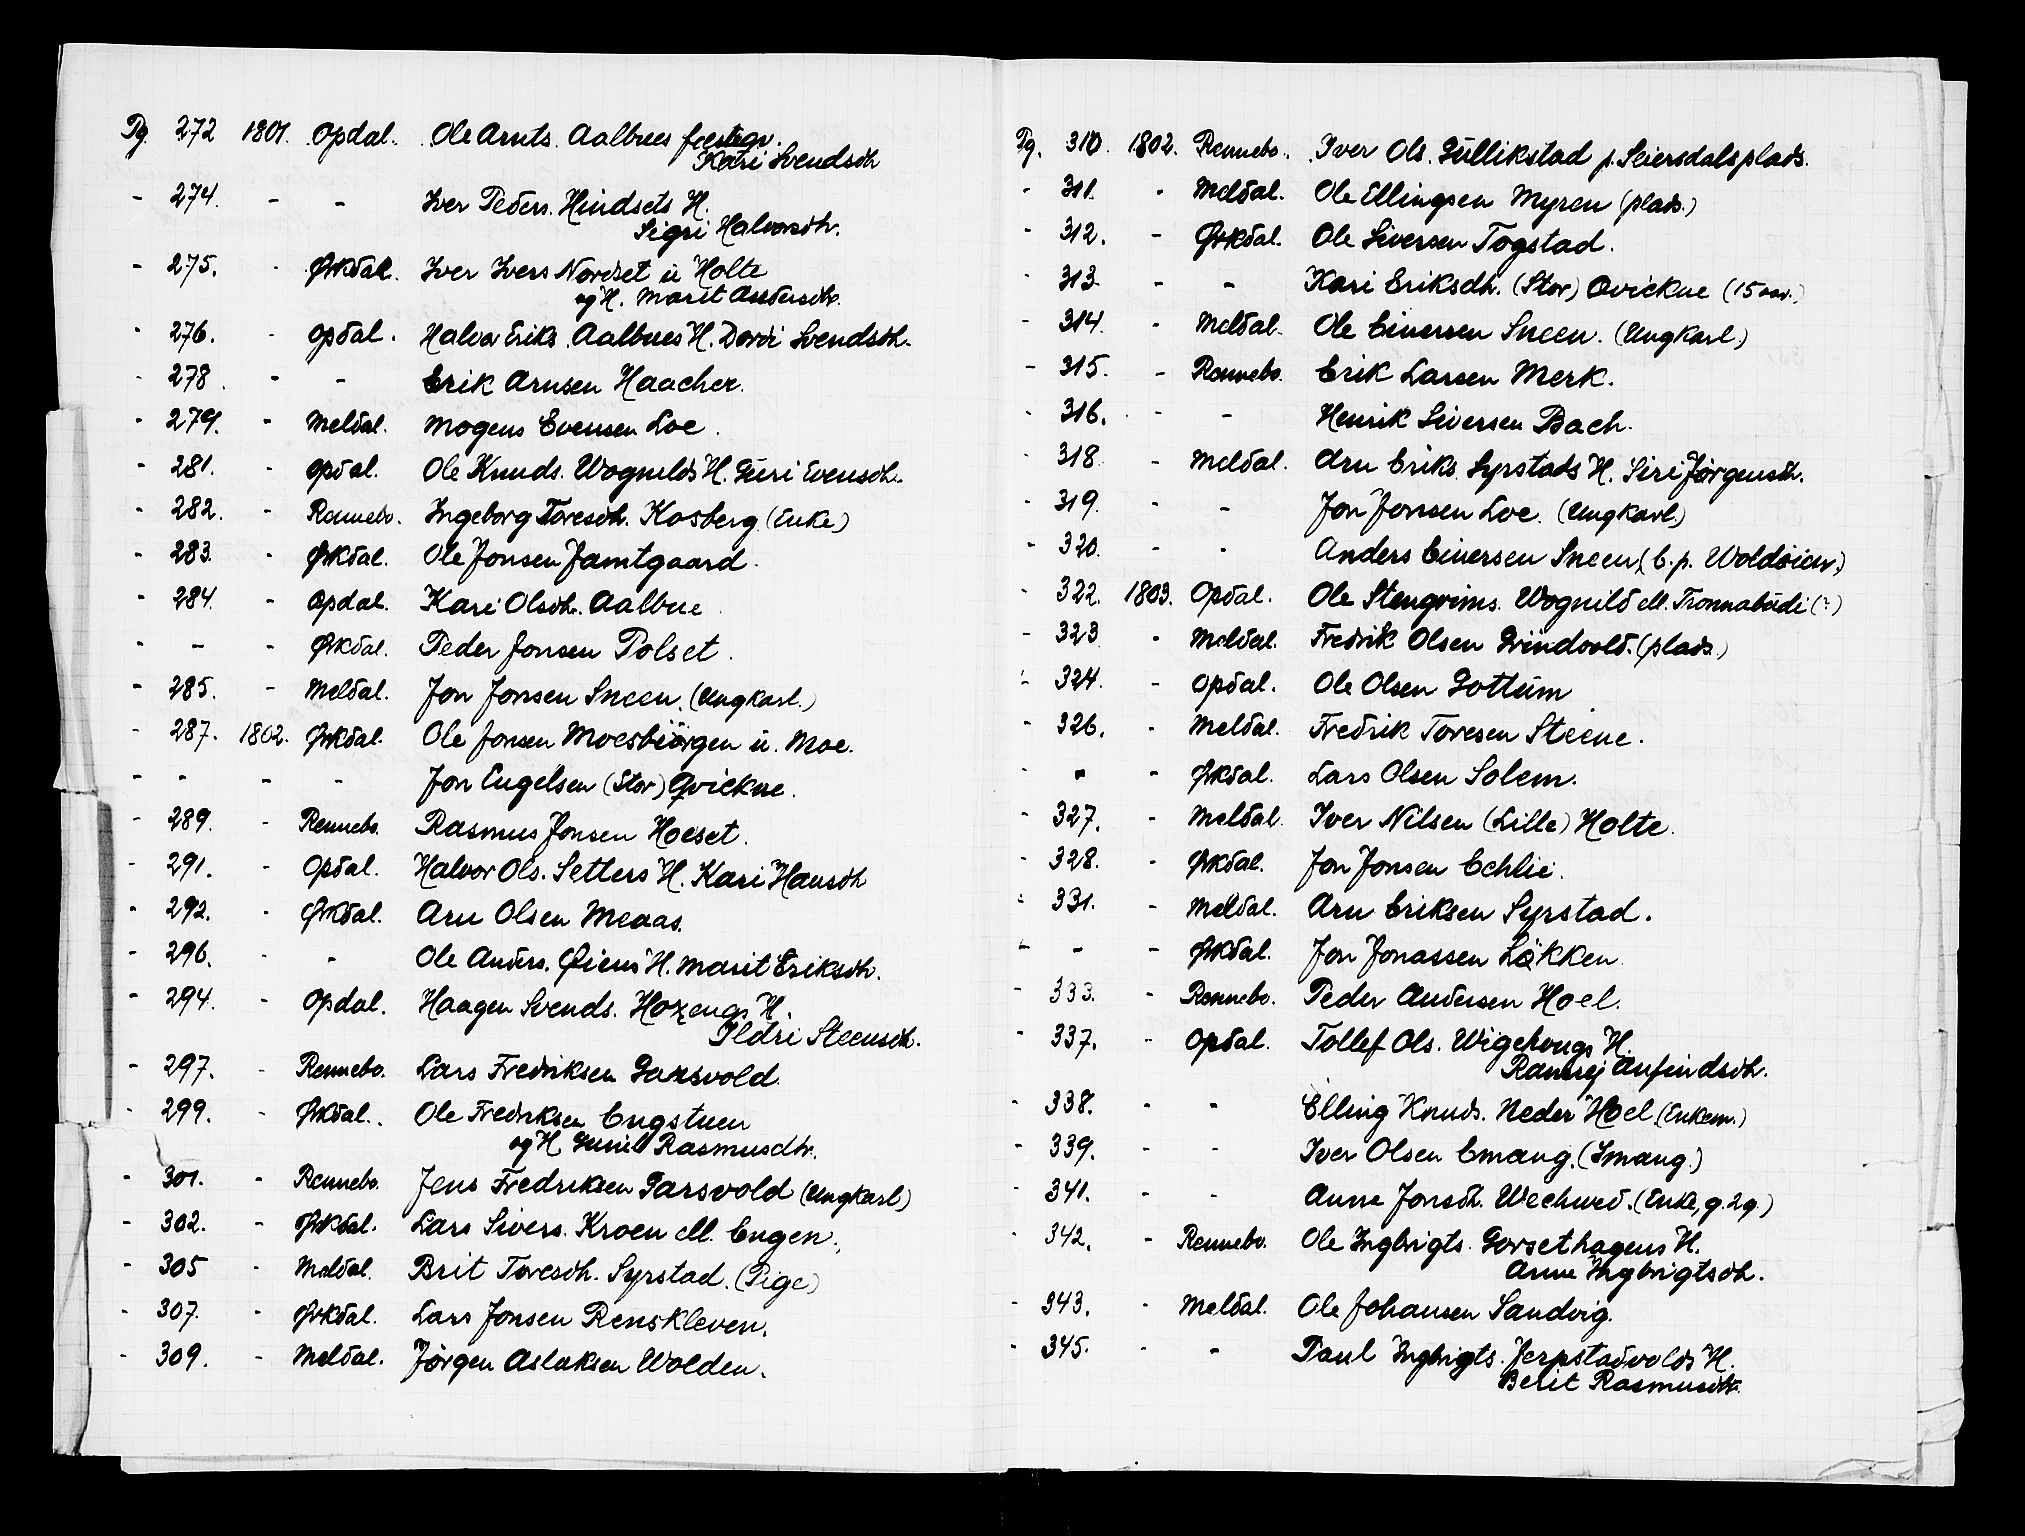 Pg. 272 1801. Opdal. Ole Arnts. Aalbues
Kari Svendsdh
- 274. - - Iver Peders. Hindsets H.
Sigri Halvorsdh.
- 275. - Ørkdal. Iver Ivers Nordset ü Holte
og H. Marit Andersdtr.
- 276. - Opdal. Halvor Eriks. Aalbues H. Dordi Svendsdh.
- 278. - - Erik Arnsen Haacher.
- 279. - Meldal. Mogens Evensen Loe.
- 281. - Opdal. Ole Knuds. Wognilds H. Guri Evensdh.
- 282. - Rennebo. Ingeborg Toresdh. Kosberg (Enke)
- 283. - Ørkdal. Ole Jonsen Jamtgaard.
- 284. - Opdal. Kari Olsdh. Aalbue.
- - - Ørkdal. Peder Jonsen Polset.
- 285. - Meldal. Jon Jonsen Sneen. (Ungkarl.)
- 287. 1802. Ørkdal. Ole Jonsen Moesbiörgen ü. Moe.
- - - - Jon Engelsen (Stor) Qvickne.
- 289. - Rennebo. Rasmus Jonsen Hoeset.
- 291. - Opdal. Halvor Ols. Setters H. Kari Hansdh
- 292. - Ørkdal. Arn Olsen Meaas.
- 296. - - Ole Anders. Øiens H. Marit Eriksdh.
- 294. - Opdal. Haagen Svends. Hozengs H.
Ildri Steensdh.
- 297. - Rennebo. Lars Fredriksen Garsvold.
- 299. - Ørkdal. Ole Fredriksen Engstuen
og H. Gunild Rasmusdtr.
- 301. - Rennebo. Jens Fredriksen Garsvold (Ungkarl)
- 302. - Ørkdal. Lars Sivers. Kroen ell. Engen.
- 305 - Meldal. Brit Toresdh. Syrstad. (Pige)
- 307. - Ørkdal. Lars Jonsen Renskleven.
- 309. - Meldal. Jørgen Aslaksen Wolden.
Pg. 310. 1802. Rennebo. Iver Ols. Gullikstad p. Seiersdalsplads.
- 311. - Meldal. Ole Ellingsen Myren (plads.)
- 312. - Ørkdal. Ole Siversen Togstad.
- 313. - - Kari Eriksdh. (Stor) Qvickne (15 aar.)
- 314. - Meldal. Ole Einersen Sneen. (Ungkarl.)
- 315. - Rennebo. Erik Larsen Merk.
- 316. - - Henrik Siversen Bach.
- 318. - Meldal. Arn Eriks. Syrstads H. Siri Jørgensdh.
- 319. - - Jon Jonsen Loe. (Ungkarl.)
- 320. - - Anders Einersen Sneen (b.p. Woldøien.)
- 322. 1803. Opdal. Ole Stengrims. Wognild ell. Tronnabüdi (?)
- 323 - Meldal. Fredrik Olsen Grindvold. (plads.)
- 324. - Opdal. Ole Olsen Gottüm
- 326. - Meldal. Fredrik Toresen Steene.
- - - Ørkdal. Lars Olsen Solem.
- 327. - Meldal. Iver Nilsen (Lille) Holte.
- 328. - Ørkdal. Jon Jonsen Echlie.
- 331. - Meldal. Arn Eriksen Syrstad.
- - - Ørkdal. Jon Jonassen Løkken.
- 333. - Rennebo. Peder Andersen Hoel.
- 337. - Opdal. Tollef Ols. Wigehougs H.
Rannej Anfindsdh.
- 338. - - Elling Knuds. Neder Hoel. (Enkem.)
- 339. - - Iver Olsen Emang. (Imang.)
- 341. - - Anne Jonsdh. Wechwed. (Enke, g. 2 g.)
- 342. - Rennebo. Ole Ingbrigts. Gorsethagens H.
Anne Ingbrigtsdh.
- 343. - Meldal. Ole Johansen Sandvig.
- 345. - - Paul Ingbrigts. Jerpstadvolds H.
Berit Rasmusdtr.